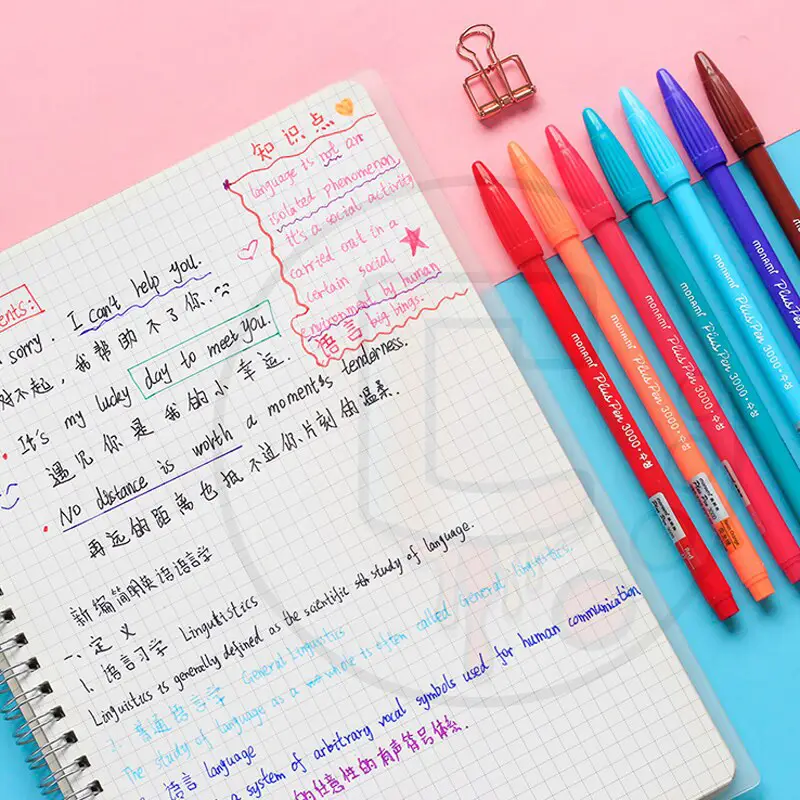 知识点
language is not an
isolated phenomenon
it's a social activity
carried out in a
certain social
environment by human
big bings.
语言
ents:
sorry. I can't help you.
对不起，我帮助不了你..
It's my lucky day to meet you.
遇见你是我的小幸运.
No distance is worth a moment's tenderness.
再远的距离也抵不过你片刻的温柔.
新编简明英语语言学
一、定义
1. 语言习学 Lingutistics
Linguistics is generally defined as the scientific sth study of language.
2. 普通语言学 General Linguistics
The study of language as a whole is often called General linguistics.
语言 language
a system of arbitrary vocal symbols used for human communication
的任意性的有声符号体系.
monami Plus Pen 3000 · 수성
monami Plus Pen 3000 · 수성
monami Plus Pen 3000 · 수성
monami Plus Pen 3000 · 수성
monami Plus Pen 3000 · 수성
monami Plus Pen